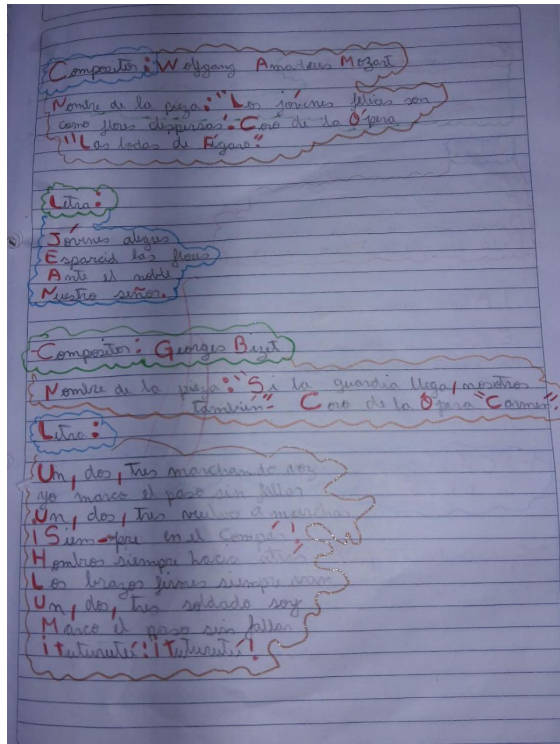 Compositor: Wolfgang Amateus Mozart
Nombre de la pieza: "Los jóvenes felices son
como flores dispersas"- Coro de la Ópera
"Las bodas de Fígaro"
Letra:
Jóvenes alegres
Esparcid las flores
Ante el noble
Nuestro señor.
Compositor: Georges Bizet
Nombre de la pieza: "Si la guardia llega, nosotros
también"- Coro de la Ópera "Carmen".
Letra:
Un, dos, tres marchando voy
yo marco el paso sin fallar
Un, dos, tres vuelvo a marchar
¡Siem-pre en el Compás!
Hombros siempre hacia atrás
Los brazos firmes siempre van
Un, dos, tres soldado soy
Marco el paso sin fallar